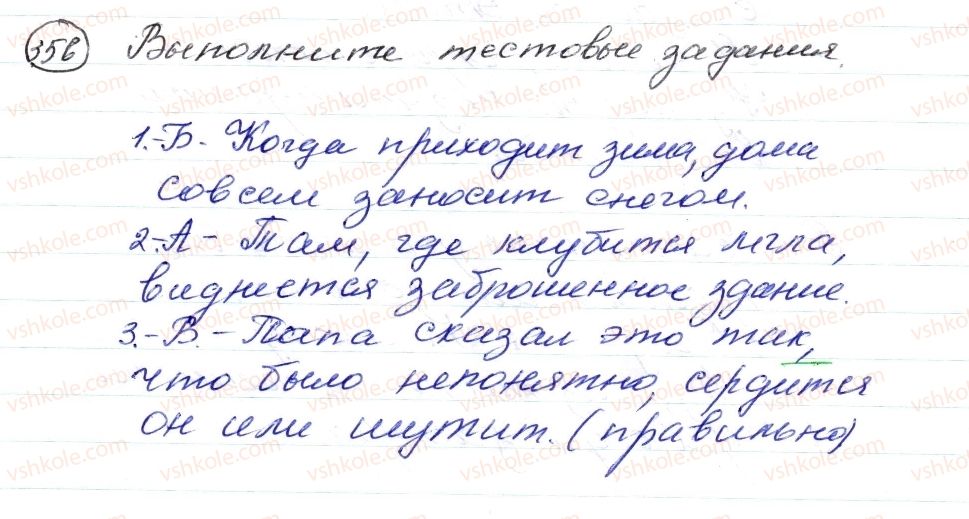 356 Выполните тестовые задания.
1.-Б- Когда приходит зима, дома
совсем заносит снегом.
2.-А- Там, где клубится мгла,
виднеется заброшенное здание.
3.-В.- Папа сказал это так,
что было непонятно, сердится
он или шутит. (правильно)